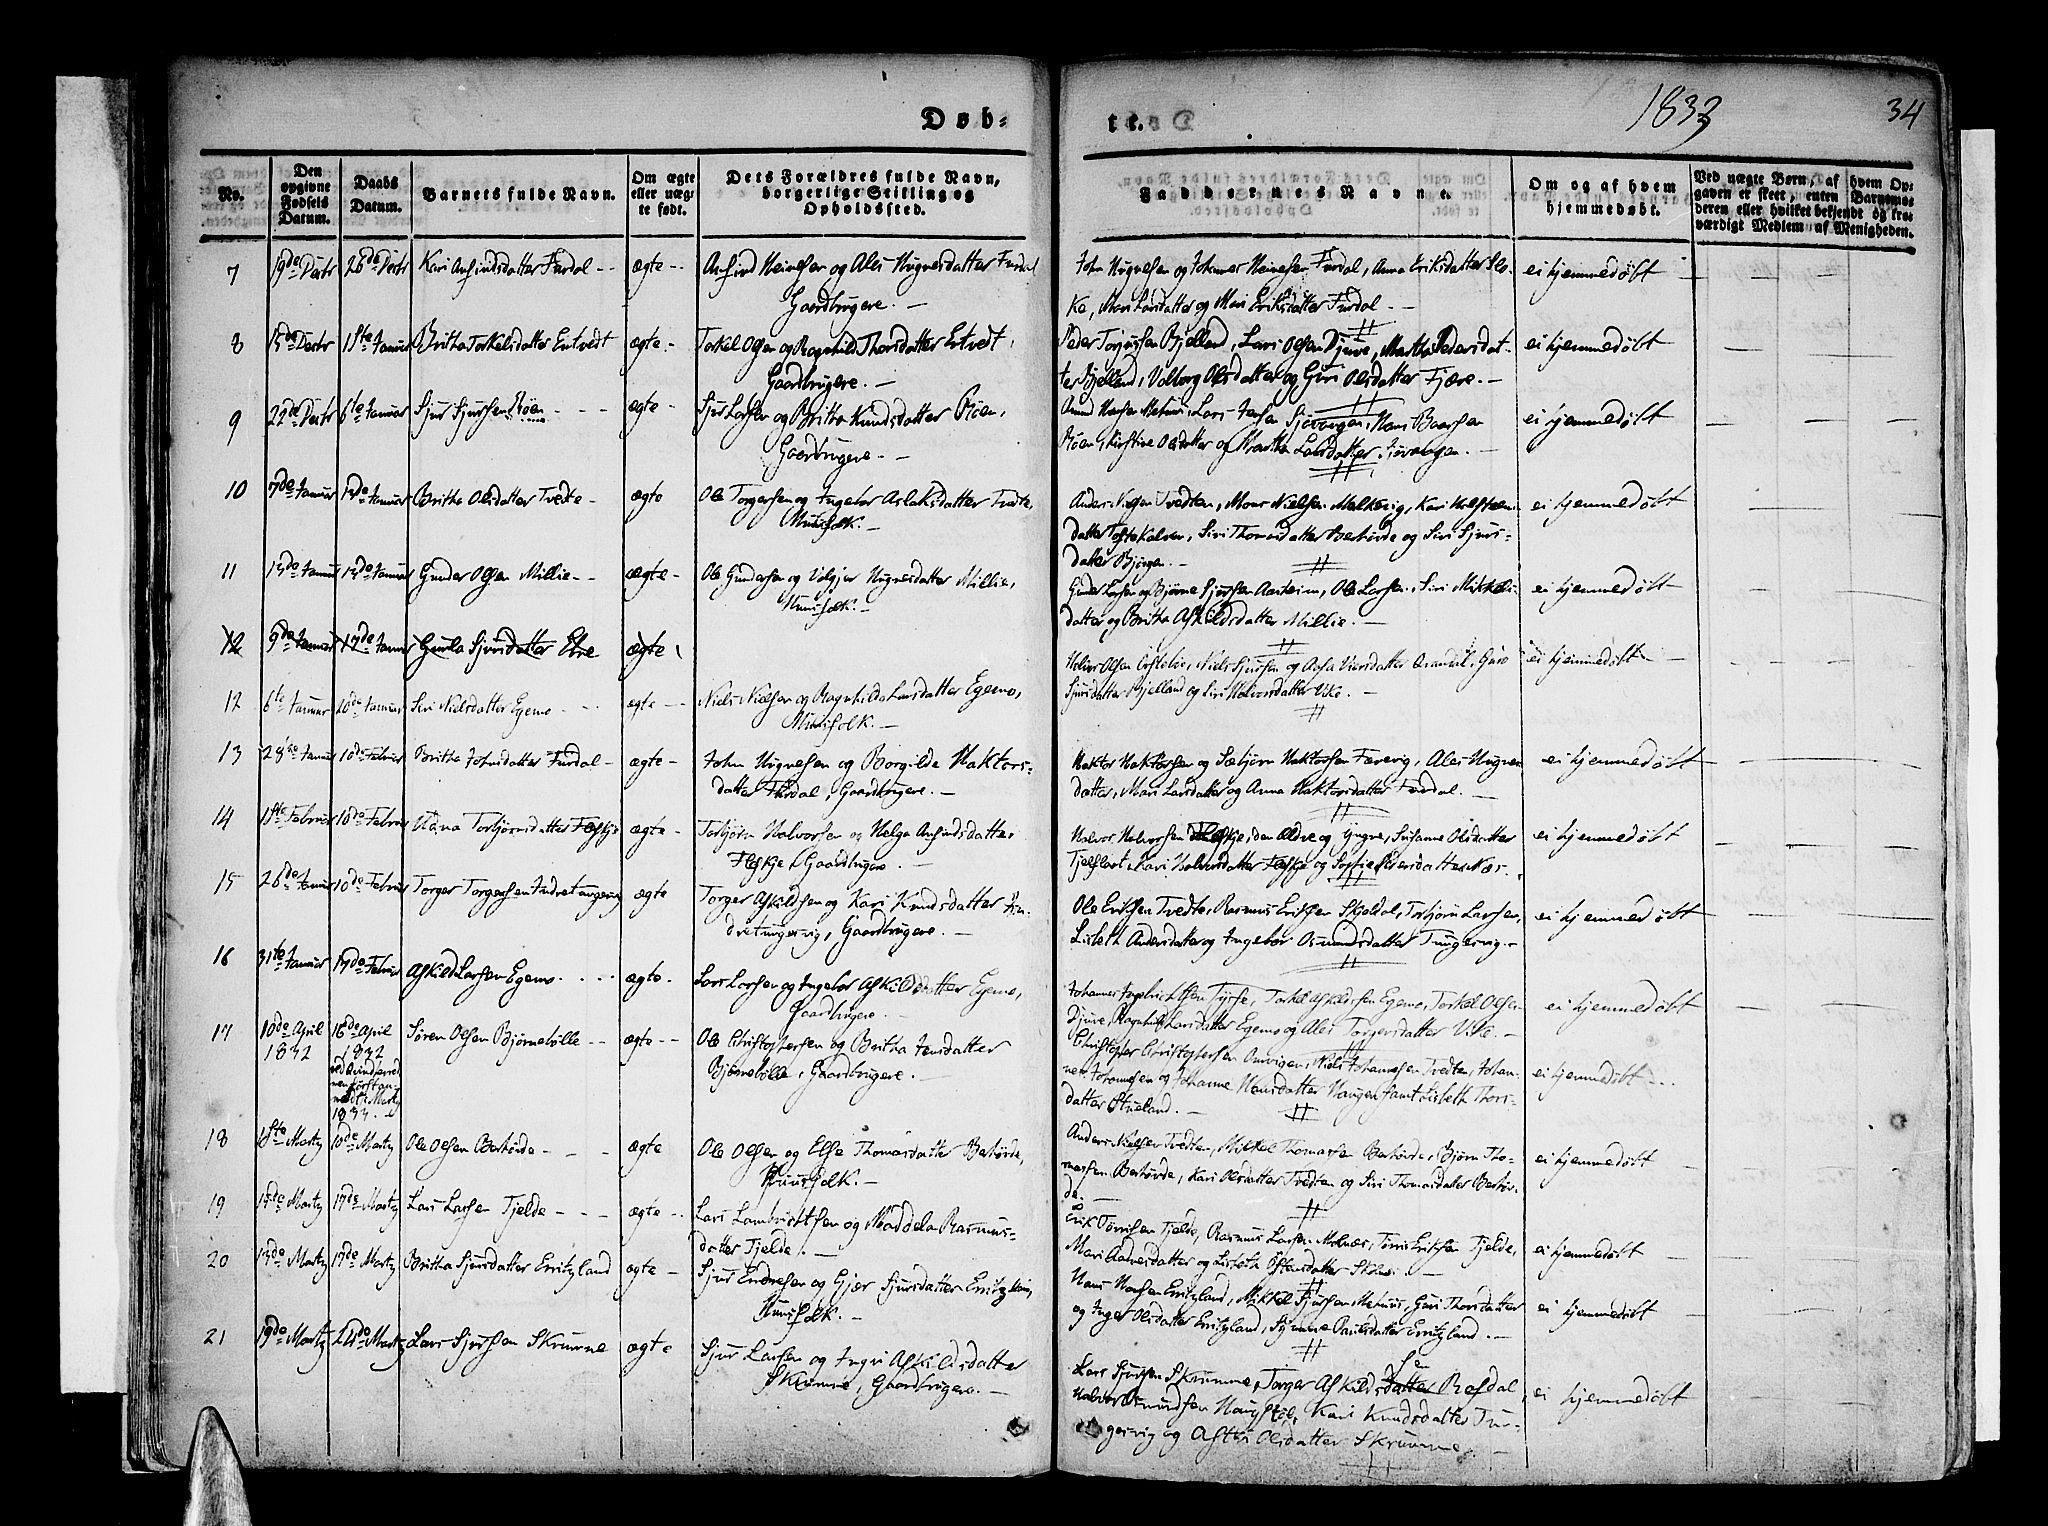 Døb-
te.
1833
34
No.
Den opgivne Fødsels Datum.
Daabs Datum.
Barnets fulde Navn.
Om ægte eller uæg- te født.
Dets Forældres fulde Navn, borgerlige Stilling og Opholdssted.
Faddernes Navne.
Om og af hvem hjemmedøbt.
Ved uægte Børn, af hvem Op-
gaven er skeet, enten Barnemo-
deren eller hvilket bekjendt og tro-
værdigt Medlem af Menigheden.
7 19de Decbr 26de Decbr Kari Anfindsdatter Furdal ægte Anfind Heinesen og Ales Hugnesdatter Furdal
Gaardbrugere.
John Hugnesen og Johannes Heinesen Furdal, Anna Eriksdatter
ke, Mari Larsdatter og Mari Eriksdatter Furdal.
ei hjemmedøbt
8 15de Decbr 1ste Januar Britha Torkelsdatter Entvedt ægte Torkel Olsen og Ragnhild Thorsdatter Entvedt,
Gaardbrugere.
Peder Bjelland, Lars Olsen Djuve, Martha Pedersdat-
ter Bjelland, Valborg Olsdatter og Guri Olsdatter Fjære.
ei hjemmedøbt
9 22de Decbr 6te Januar Sjur Sjursen Røen ægte Sjur Larsen og Britha Knudsdatter Røen,
Gaardbrugere.
Lars Jensen Hans Baarsen
Røen, Kirstine Olsdatter og Martha Larsdatter
ei hjemmedøbt
10 7de Januar 13de Januar Britha Olsdatter Tvedte ægte Ole Torgersen og Ingebor Aslaksdatter Tvedte,
Huusfolk.
Anders Nielsen Tvedten, Mons Nielsen Melkevig, Kari
datter Toftekalven, Siri Thomasdatter Berhovde og Siri Sjurs-
datter Bjørgen.
ei hjemmedøbt
11 13de Januar 13de Januar Gunder Olsen Millie ægte Ole Gundersen og Valgjer Hugnesdatter Millie,
Huusfolk.
Gunder Larsen og Bjørne Sjursen Aarheim, Ole Larsen, Siri Mikkels-
datter og Britha Askildsdatter Millie.
ei hjemmedøbt
12 9de Januar 17de Januar Gurla Sjursdatter Etne ægte
Halvor Olsen Niels Sjursen og
Sjursdatter Bjelland og Siri Halvorsdatter Vike.
ei hjemmedøbt
12 6te Januar 20de Januar Siri Nielsdatter Egemo ægte Niels Nielsen og Ragnhilda Larsdatter Egemo,
Huusfolk.
13 28de Januar 10de Februar Britha Johnsdatter Furdal ægte John Hugnesen og Borgilde Haktors-
datter Furdal, Gaardbrugere.
Haktor Haktorsen og Sæbjørn Haktorsen Færevig, Ales Hugnes
datter, Mari Larsdatter og Anna Haktorsdatter Furdal.
ei hjemmedøbt
14 1ste Februar 10de Februar Torbjørnsdatter Fleskje ægte Torbjørn Halvorsen og Helga Anfindsdatter
Fleskje, Gaardbrugere.
Halvor Halvorsen Fleskje, den Ældre og Yngre, Susanne Olsdatter
Kari Halvorsdatter Fleskje og Sophie Pedersdatter Næs.
ei hjemmedøbt
15 26de Januar 10de Februar Torger Torgersen Indretungevig ægte Torger Askildsen og Kari Knudsdatter In-
dretungevig, Gaardbrugere.
Ole Eriksen Tvedte, Rasmus Eriksen Skjeldal, Torbjørn Larsen,
Lisbeth Andersdatter og Ingebor Osmundsdatter Tungevig.
ei hjemmedøbt
16 31te Januar 17de Februar Askild Larsen Egemo ægte Lars Larsen og Ingebor Askildsdatter Egemo,
Gaardbrugere.
Johannes Torkel Askildsen Egemo, Torkel Olsen
Djuve, Ragnhild Larsdatter Egemo og Ales Torgersdatter Vike.
ei hjemmedøbt
17 10de April
1832
16de April
1832
1833.
Søren Olsen Bjørnebølle ægte Ole Christophersen og Britha Jensdatter
Bjørnebølle, Gaardbrugere.
Christopher Christophersen Niels Johannesen Tvedten, Johan-
nes Johannesen og Johanne Hansdatter Haugen samt Lisbeth Thors-
datter Stueland.
ei hjemmedøbt
18 1ste Martz 10de Martz Ole Olsen Berhovde ægte Ole Olsen og Else Thomasdatter Berhovde,
Huusfolk.
Anders Nielsen Tvedten, Mikkel Thomassen Berhovde, Bjørn Tho-
massen Berhovde, Kari Olsdatter Tvedten og Siri Thomasdatter Berhov-
de.
ei hjemmedøbt
19 15de Martz 17de Martz Lars Larsen Tjelde ægte Lars Lambrichtsen og Maddela Rasmus-
datter Tjelde.
Erik Tørrisen Tjelde, Rasmus Larsen Milnæs, Tørris Eriksen Tjelde,
Mari og Lisbeth Østensdatter
ei hjemmedøbt
20 13de Martz 17de Martz Britha Sjursdatter Erritzland ægte Sjur Endresen og Gjær Sjursdatter Erritzland,
Huusfolk.
Hans Hansen Erritzland, Mikkel Sjursen Mehuus, Guri Thorsdatter
og Inger Olsdatter Erritzland, Synneve Paulsdatter Erritzland.
ei hjemmedøbt
21 19de Martz 24de Martz Lars Sjursen Skrumme ægte Sjur Larsen og Ingri Askildsdatter
Skrumme, Gaardbrugere.
Lars Sjursen Skrumme, Torger Askildsdatter sen Røsdal,
Halvor Osmundsen Kari Knudsdatter Tun-
gesvig og Astri Olsdatter Skrumme.
ei hjemmedøbt